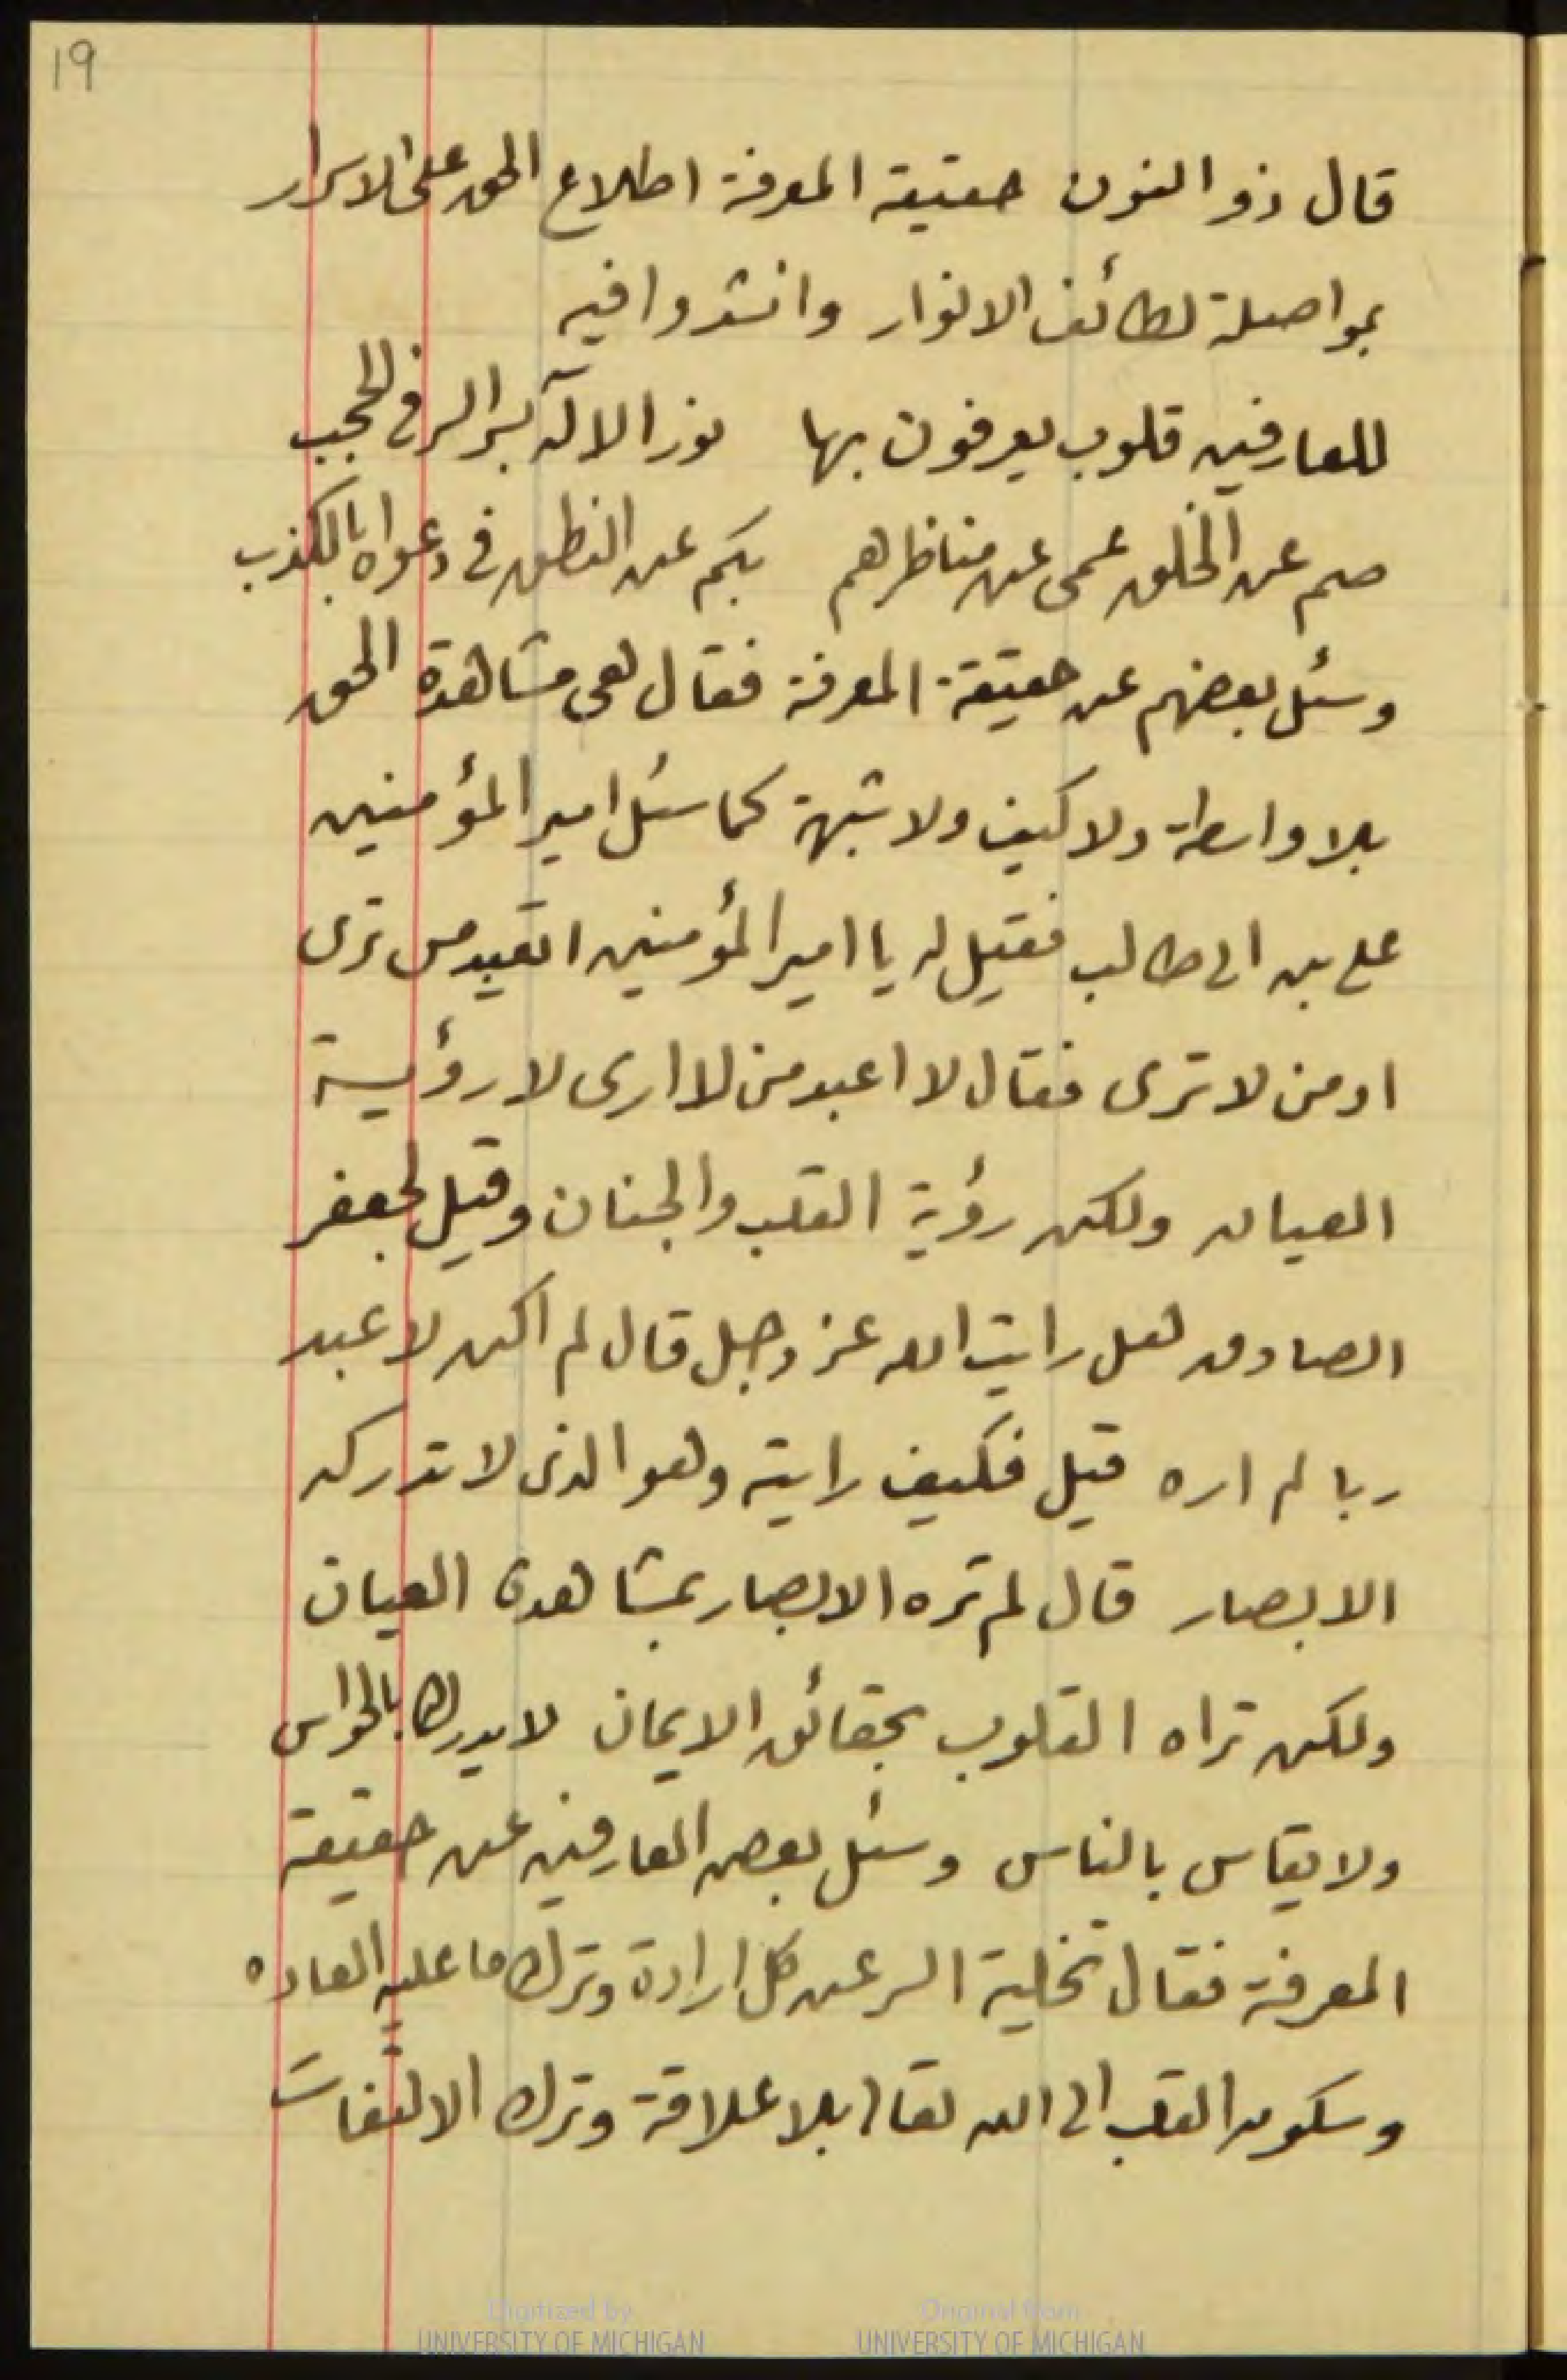 ١٩
قال ذو النون حقيقة المعرفة اطلاع الحق على الاسرار
بمواصلة لطائف الانوار وانشدوا فيه
للعارفين قلوب يعرفون بها نور الالٓه بسر السر فى الحجب
صم عن الخلق عمى عن مناظرهم بكم عن النطق فى دعواه بالكذب
وسئل بعضهم عن حقيقة المعرفة فقال هى مشاهدة الحق
بلا واسطة ولا كيف ولا شبهة كما سئل امير المؤمنين
على بن ابى طالب فقيل له يا امير المؤمنين اتعبد من ترى
او من لا ترى فقال لا اعبد من لا ارى لا رؤية
العيان ولكن رؤية القلب والجنان وقيل لجعفر
الصادق هل رايت الله عز وجل قال لم اكن لاعبد
ربا لم اره قيل فكيف رايته وهو الذى لا تدركه
الابصار قال لم تره الابصار بمشاهدة العيان
ولكن تراه القلوب بحقائق الايمان لا يدرك بالحواس
ولا يقاس بالناس وسئل بعض العارفين عن حقيقة
المعرفة فقال تخلية السر عن كل ارادة وترك ما عليه العاده
وسكون القلب الى الله تعالى بلا علاقة وترك الالتفات
Digitized by
UNIVERSITY OF MICHIGAN
Original from
UNIVERSITY OF MICHIGAN